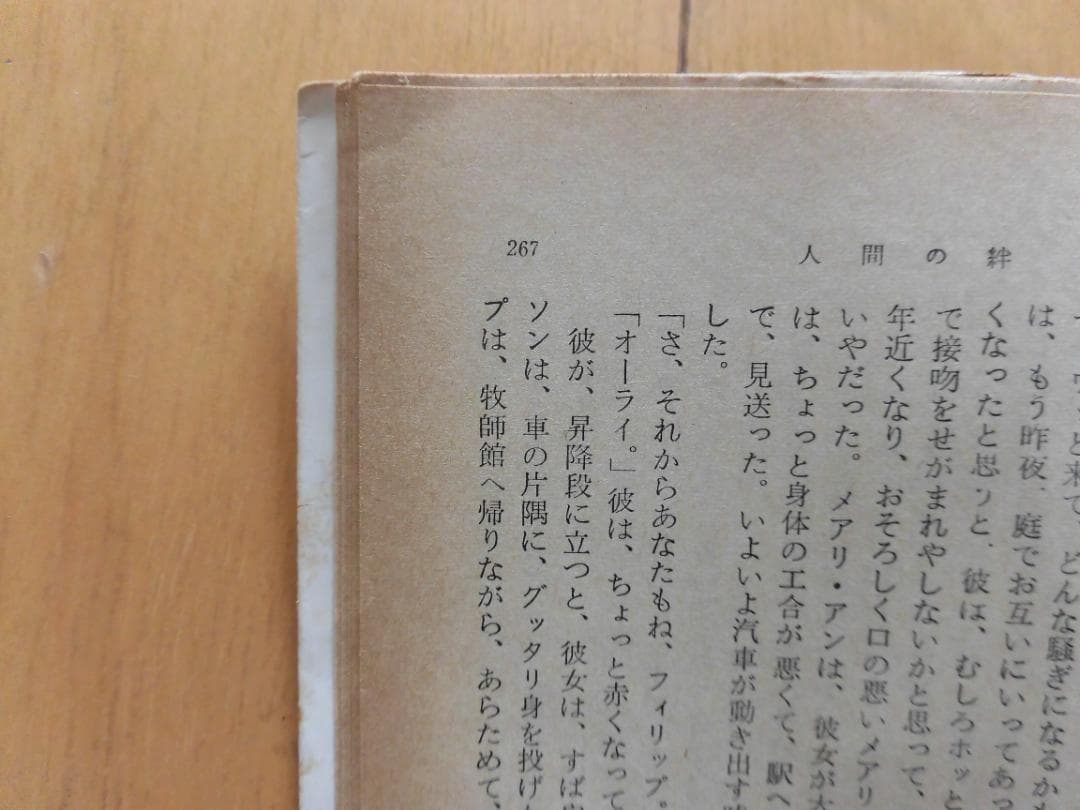 267
人間の絆
と来て、どんな騒ぎになるか
は、もう昨夜、庭でお互いにいってあ
くなったと思うと、彼は、むしろホッと
で接吻をせがまれやしないかと思って、
年近くなり、おそろしく口の悪いメアリ
いやだった。メアリ・アンは、彼女が
は、ちょっと身体の工合が悪くて、駅へ
で、見送った。いよいよ汽車が動き出す
した。
「さ、それからあなたもね、フィリップ。
「オーライ。」彼は、ちょっと赤くなって
彼が、昇降段に立つと、彼女は、すば
ソンは、車の片隅に、グッタリ身を投げ
プは、牧師館へ帰りながら、あらためて、